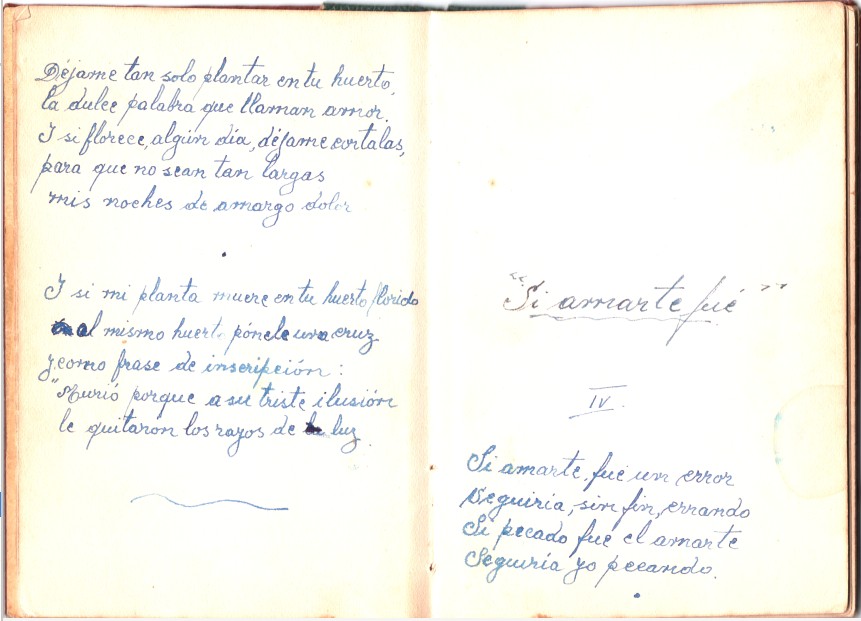 Déjame tan solo plantar en tu huerto,
la dulce palabra que llaman amor.
I si florece, algún día, déjame cortalas,
para que no sean tan largas
mis noches de amargo dolor
I si mi planta muere en tu huerto florido
al mismo huerto pónele una cruz
y como frase de inscripción:
"Murió porque a su triste ilusión
le quitaron los rayos de luz.
"Si amarte fué"
IV.
Si amarte, fué un error
Seguiria, sin fin, errando
Si pecado fue el amarte
Seguiría yo pecando.